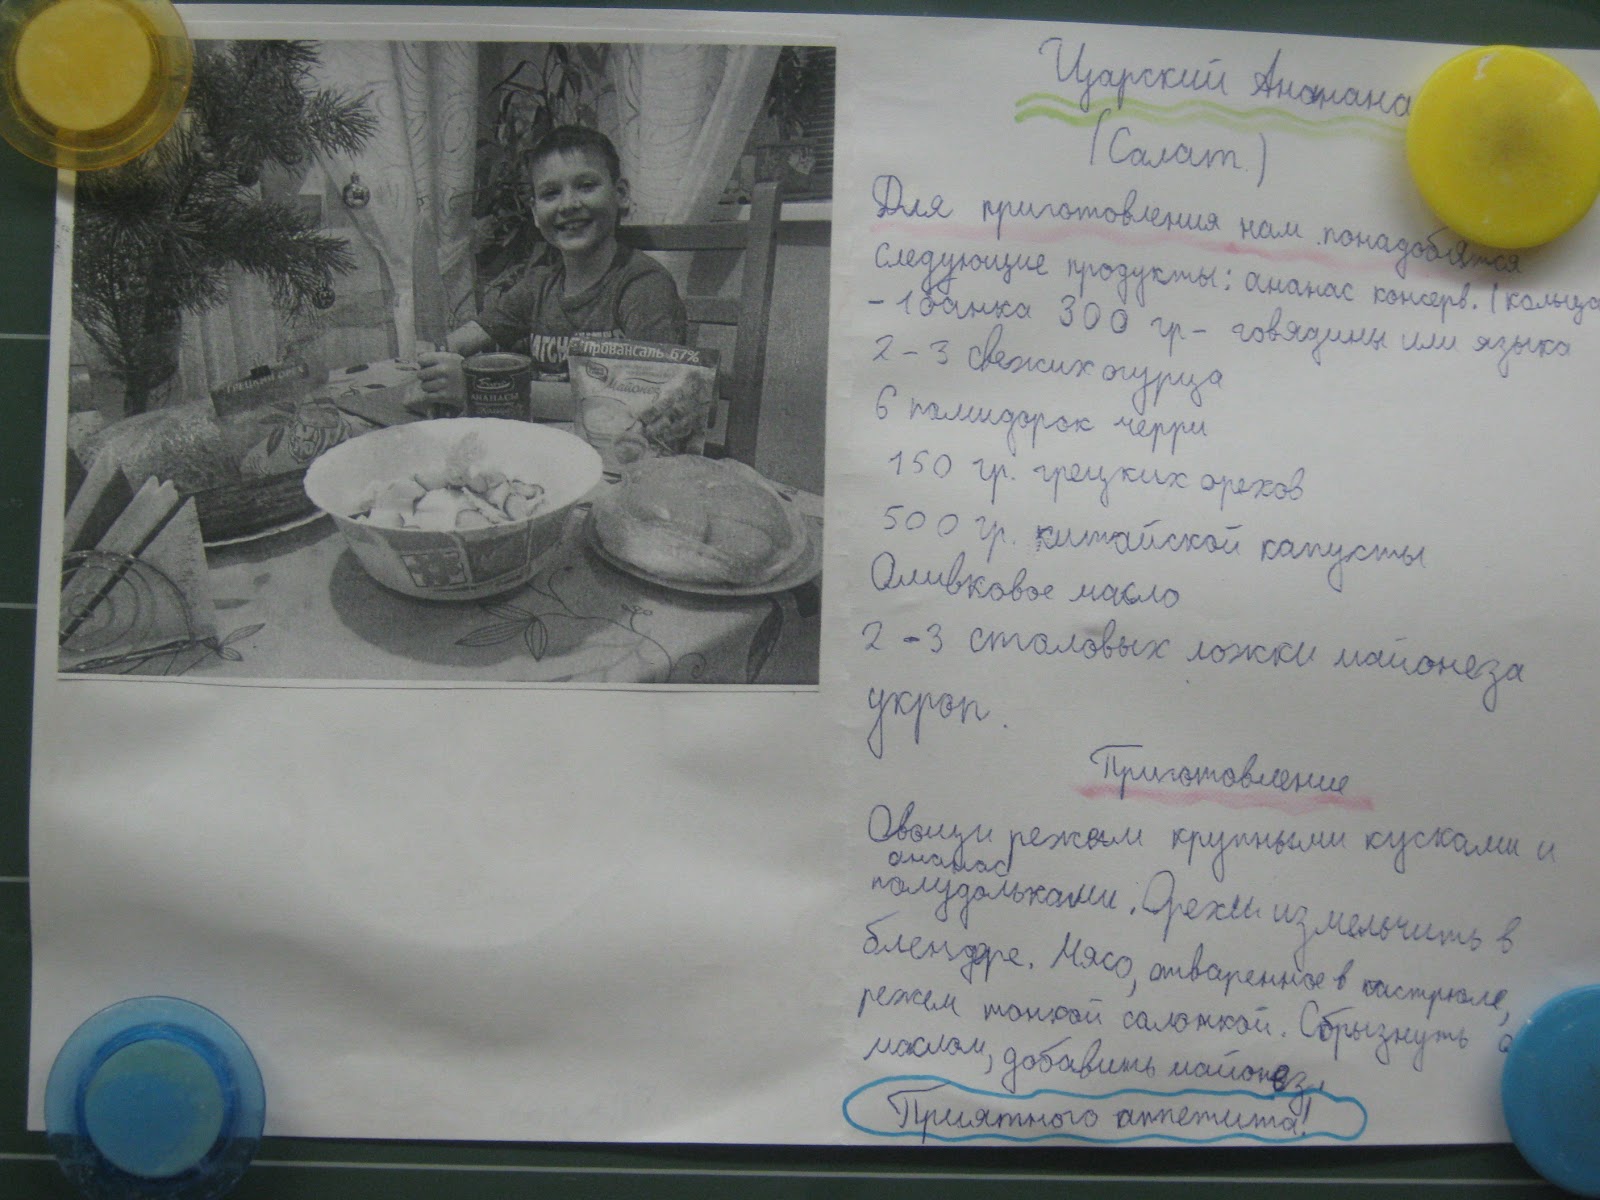 ГРЕЦКИЙ ОРЕХ
АНАНАСЫ
ПРОВАНСАЛЬ 67%
Майонез
Царский Ананана
(Салат)
Для приготовления нам понадобятся
следующие продукты: ананас консерв. (кольца
- 1 банка 300 гр - говядины или языка
2 - 3 свежих огурца
6 помидорок черри
150 гр. грецких орехов
500 гр. китайской капусты
Оливковое масло
2 - 3 столовых ложки майонеза
укроп.
Приготовление
Овощи режем крупными кусками и
ананас
полудольками. Орехи измельчить в
блендре. Мясо, отваренное в кастрюле,
режем тонкой соломкой. Сбрызнуть
маслом, добавить майонез.
Приятного аппетита!